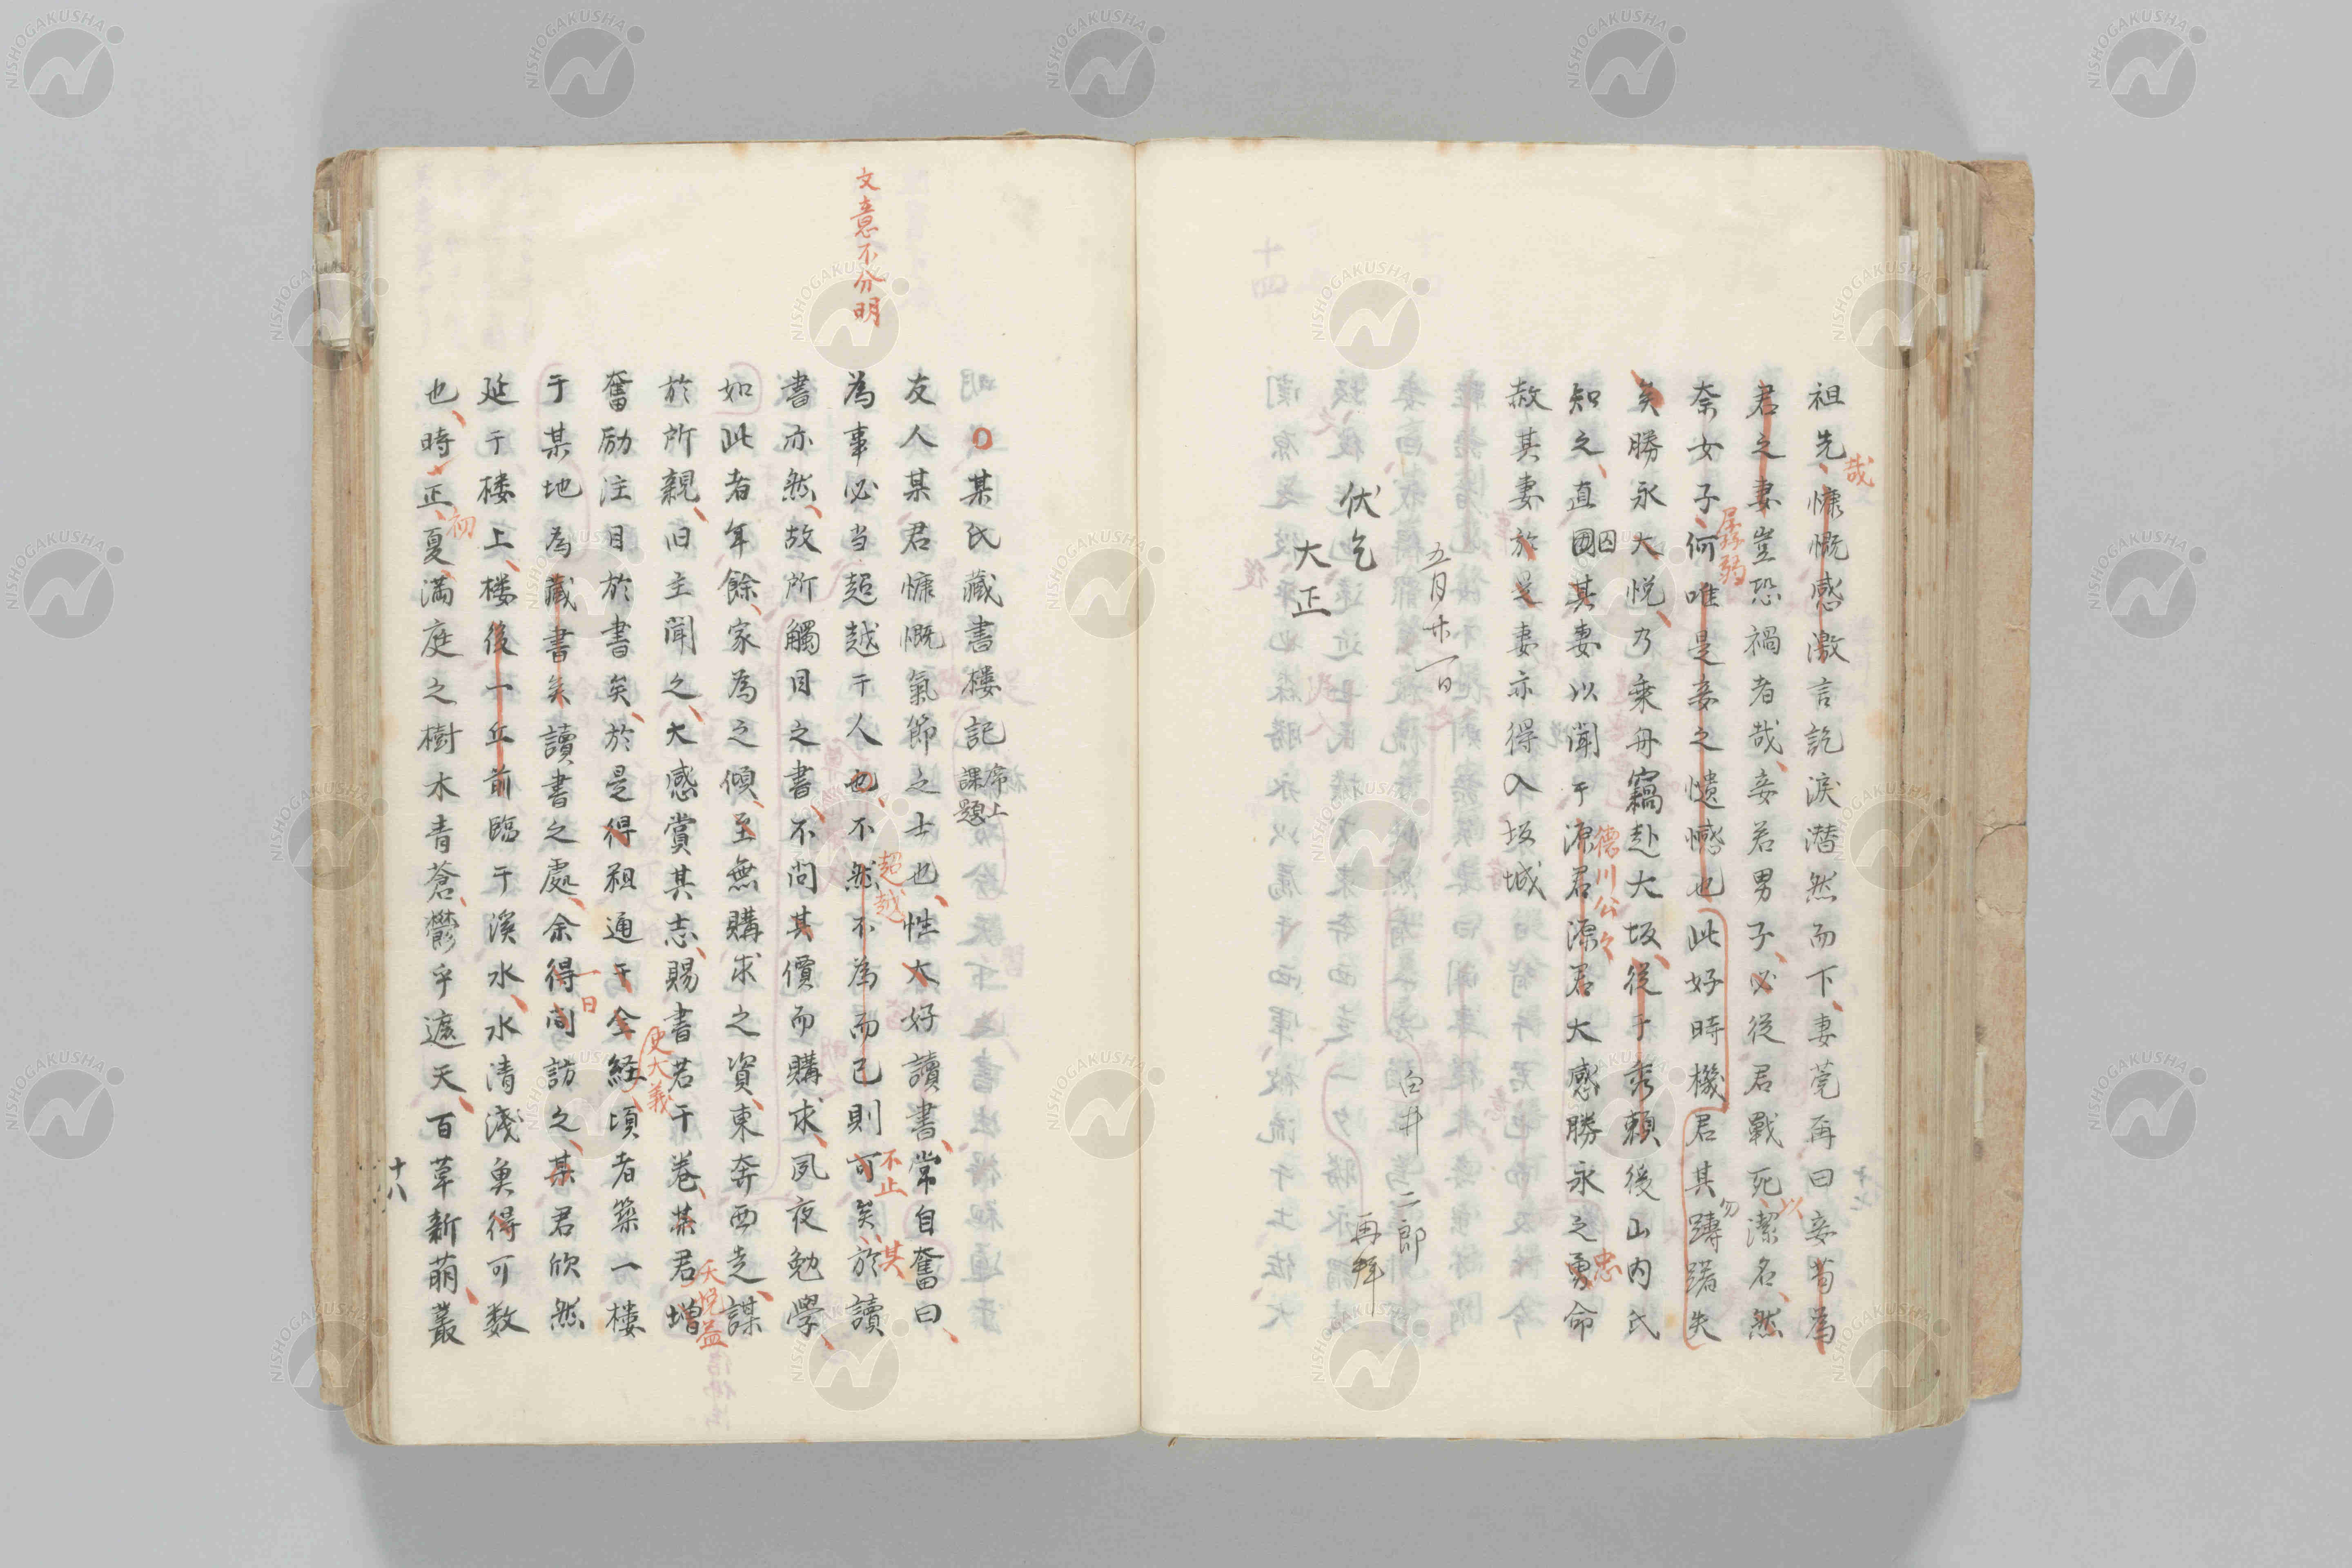 祖先慷慨感激言訖淚潜然而下妻莞再曰妾苟為
哉
君之妻豈恐禍者哉妾若男子必従君戰死潔名然
以
奈女子何唯是妾之憓憾也此好時機君其躊躇失
孱弱
勿
矣勝永大悦乃乗舟竊赴大坂従于秀頼後山内氏
知之直國其妻以聞于源君源君大感勝永之勇命
囚
德川公
忠
赦其妻於是妻亦得入坂城
五月廿一日
白井二郎
再拜
伏乞
大正
〇某氏藏書楼記
席上課題
友人某君慷慨氣節之士也性大好讀書常自奮曰
為事必当超越于人也不然不為而已則可矣於讀
超越
不止
其
文意不分明
書亦然故所觸目之書不問其價而購求夙夜勉學
如此者年餘家為之傾至無購求之資東奔西走謀
於所親旧主聞之大感賞其志賜書若干巻某君増
天悦益
奮励注目於書矣於是得粗通于全経頃者築一楼
史大義
于某地為藏書矣讀書之處余得間訪之某君欣然
一日
延于楼上楼後一丘前臨于溪水水清淺魚得可数
也時正夏満庭之樹木青蒼鬱乎遮天百草新萌叢
初
十八
NISHOGAKUSHA